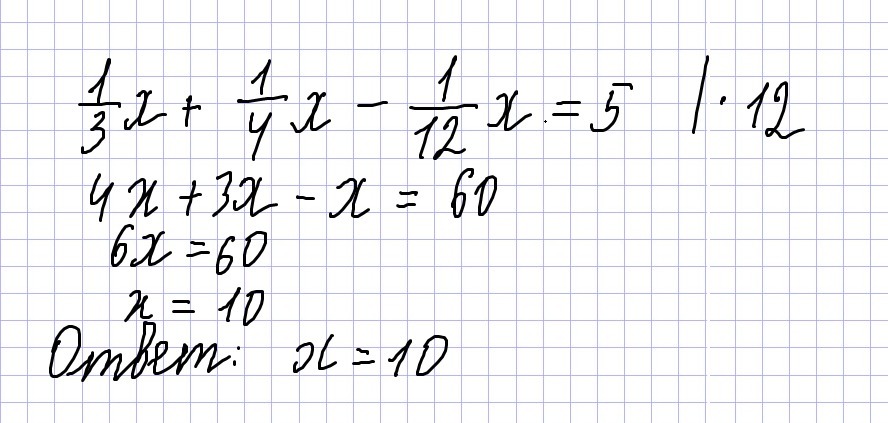 1/3 x + 1/4 x − 1/12 x = 5 | · 12
4x + 3x − x = 60
6x = 60
x = 10
Ответ: x = 10